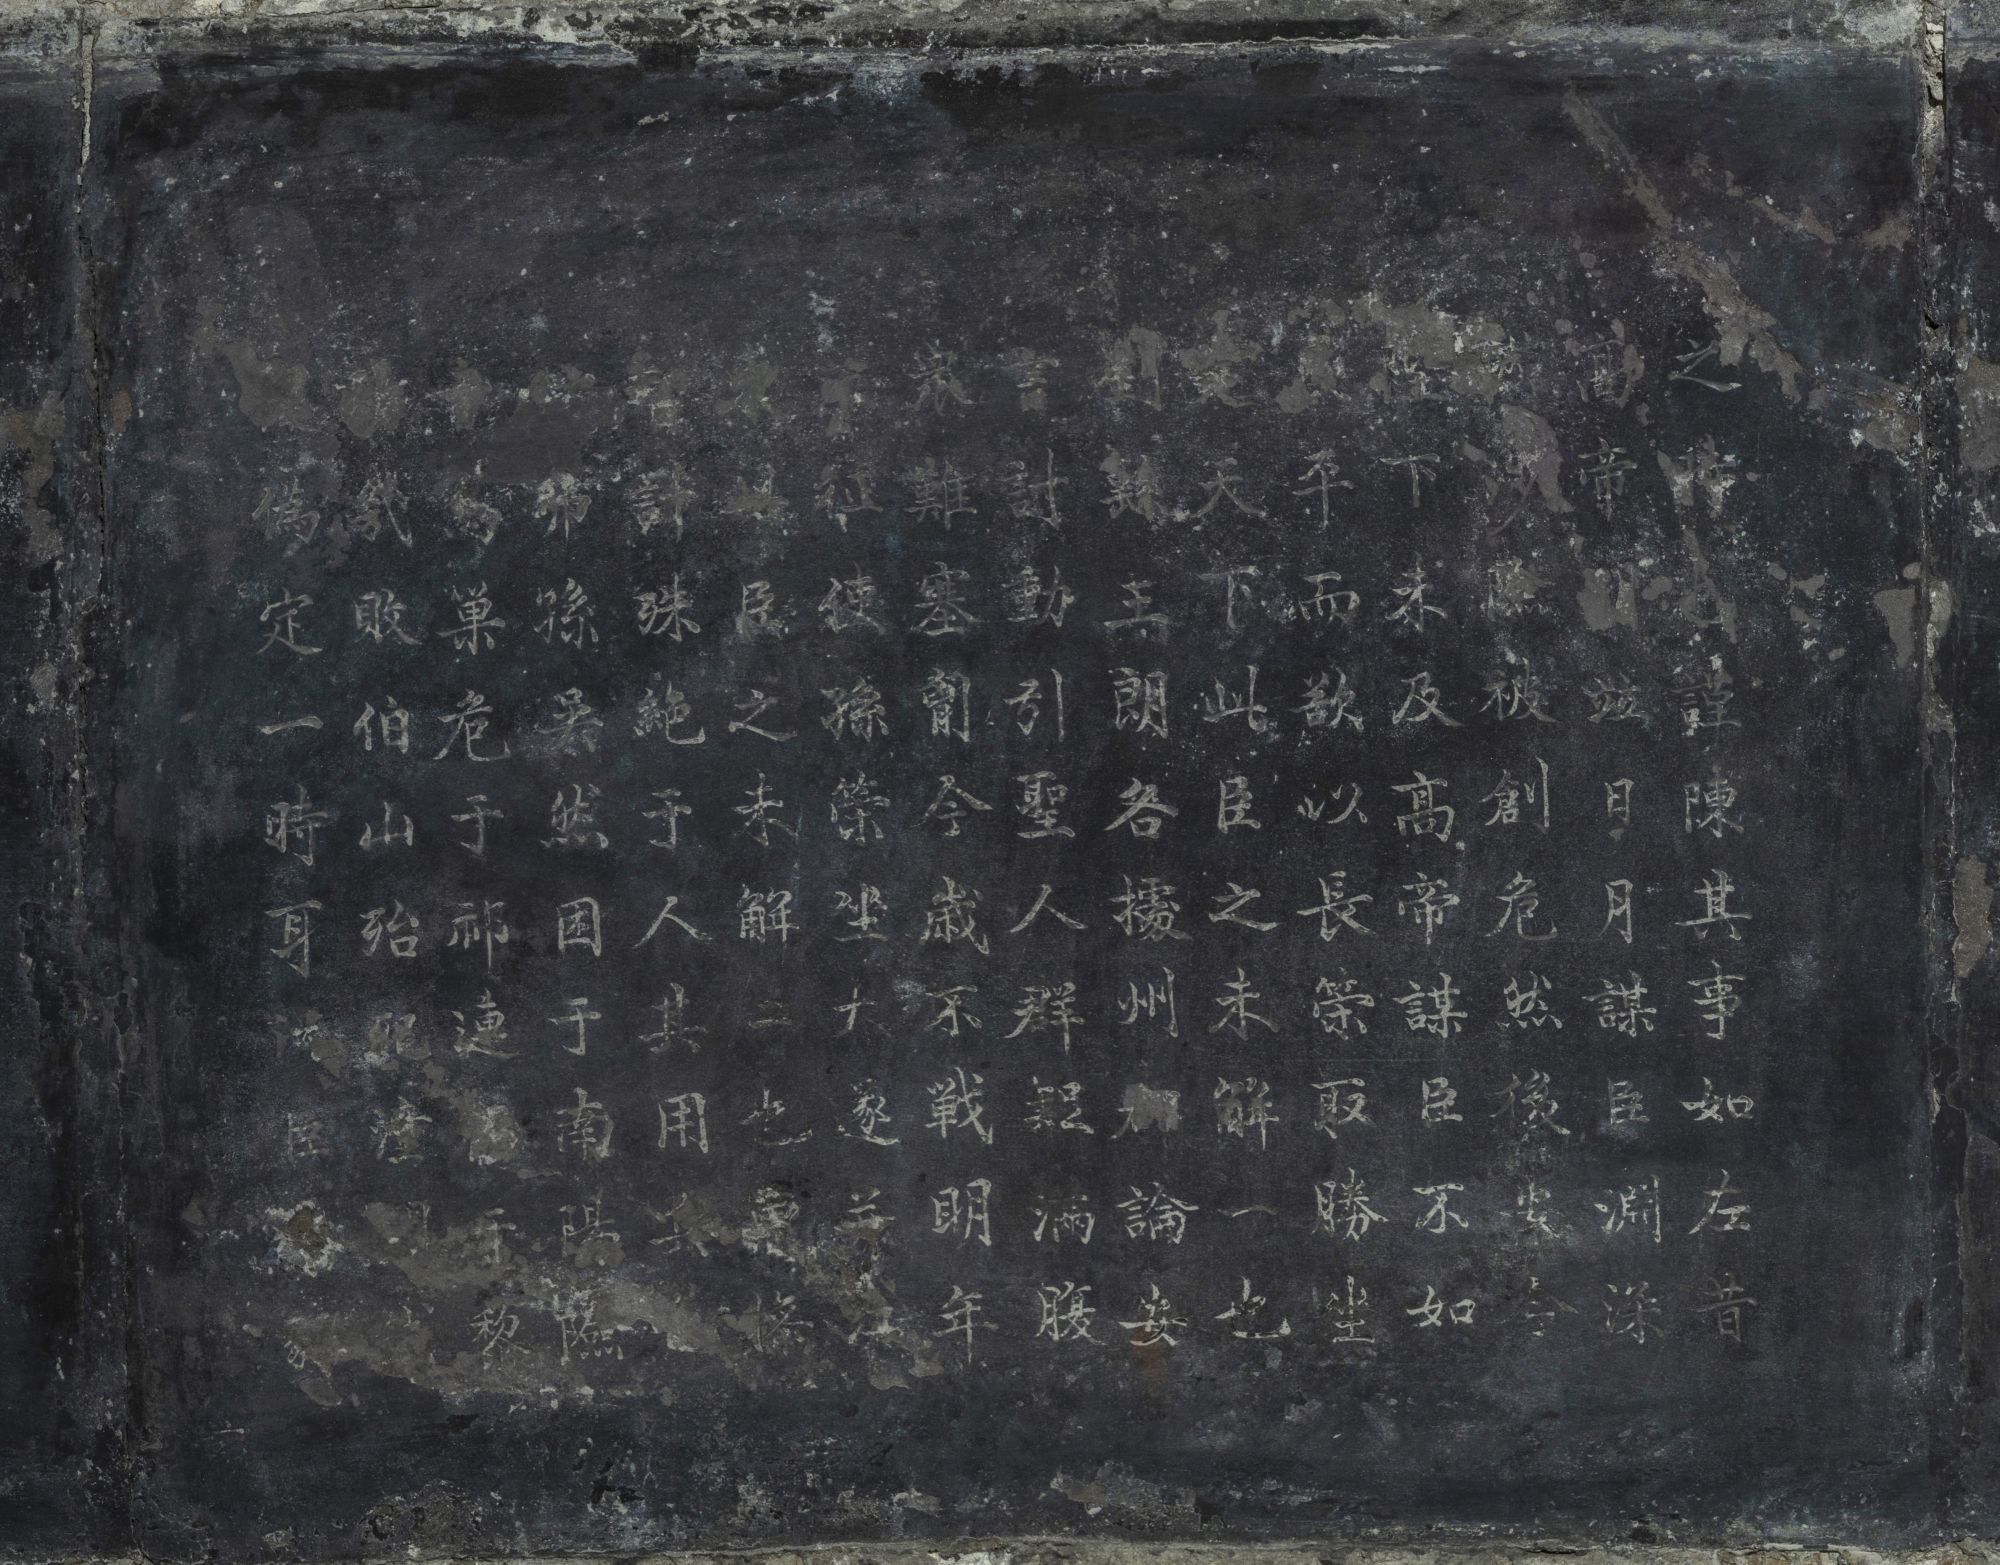 之時也謹陳其事如左昔
高帝明竝日月謀臣淵深
涉險被創危然後安今
陛下未及高帝謀臣不如
平而欲以長策取勝坐
定天下此臣之未解一也
劉繇王朗各據州郡論安
言計動引聖人群疑滿腹
衆難塞胷今歲不戰明年
不征使孫策坐大遂并江
東此臣之未解二也曹操
智計殊絕于人其用兵
孫吳然困于南陽險
于烏巢危于祁連逼于黎
陽幾敗伯山殆死潼關
偽定一時耳況臣